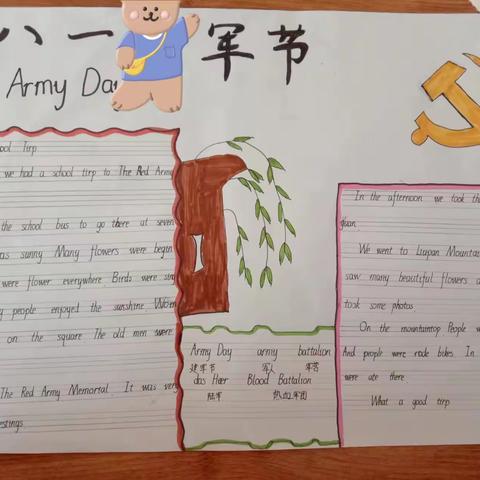 八一 军节
Army Da
ool Tirp
we had a school tirp to The Red Army
the school bus to go there at seven
as sunny Many flowers were began
were flower everywhere Birds were sin
y people enjoyed the sunshine Wom
on the square The old men were
The Red Army Memortal. It was very
estings
Army Day army battalion
建军节 军人 军营
das Haer Blood Battalion
陆军 热血军团
In the afternoon we took the
guan
We went to Liupan Mountain
saw many beautiful flowers a
took some photos
On the mountaintop People w
And people were rode bikes. In
were ate there
What a good tirp